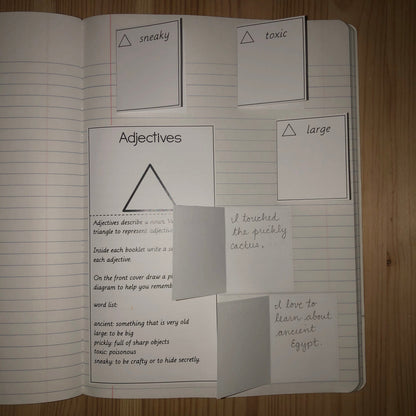 sneaky
toxic
large
Adjectives
Adjectives describe a noun.
triangle to represent adjective
Inside each booklet write a
each adjective.
On the front cover draw a
diagram to help you remember
word list:
ancient: something that is very old
large: to be big
prickly: full of sharp objects
toxic: poisonous
sneaky: to be crafty or to hide secretly.
I touched
the prickly
cactus.
I love to
learn about
ancient
Egypt.